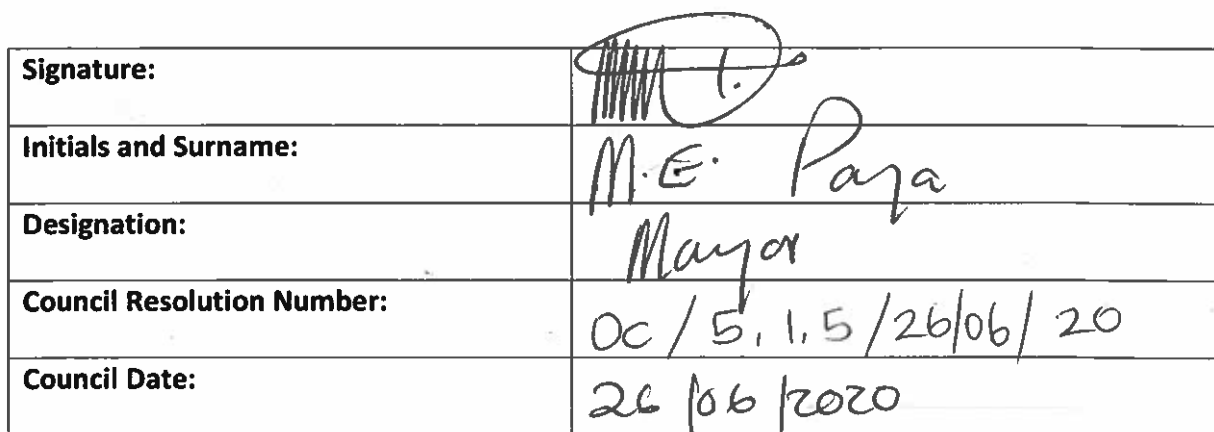 Signature:
Initials and Surname: M.E. Paya
Designation: Mayor
Council Resolution Number: OC / 5.1.5 / 26/06/ 20
Council Date: 26/06/2020